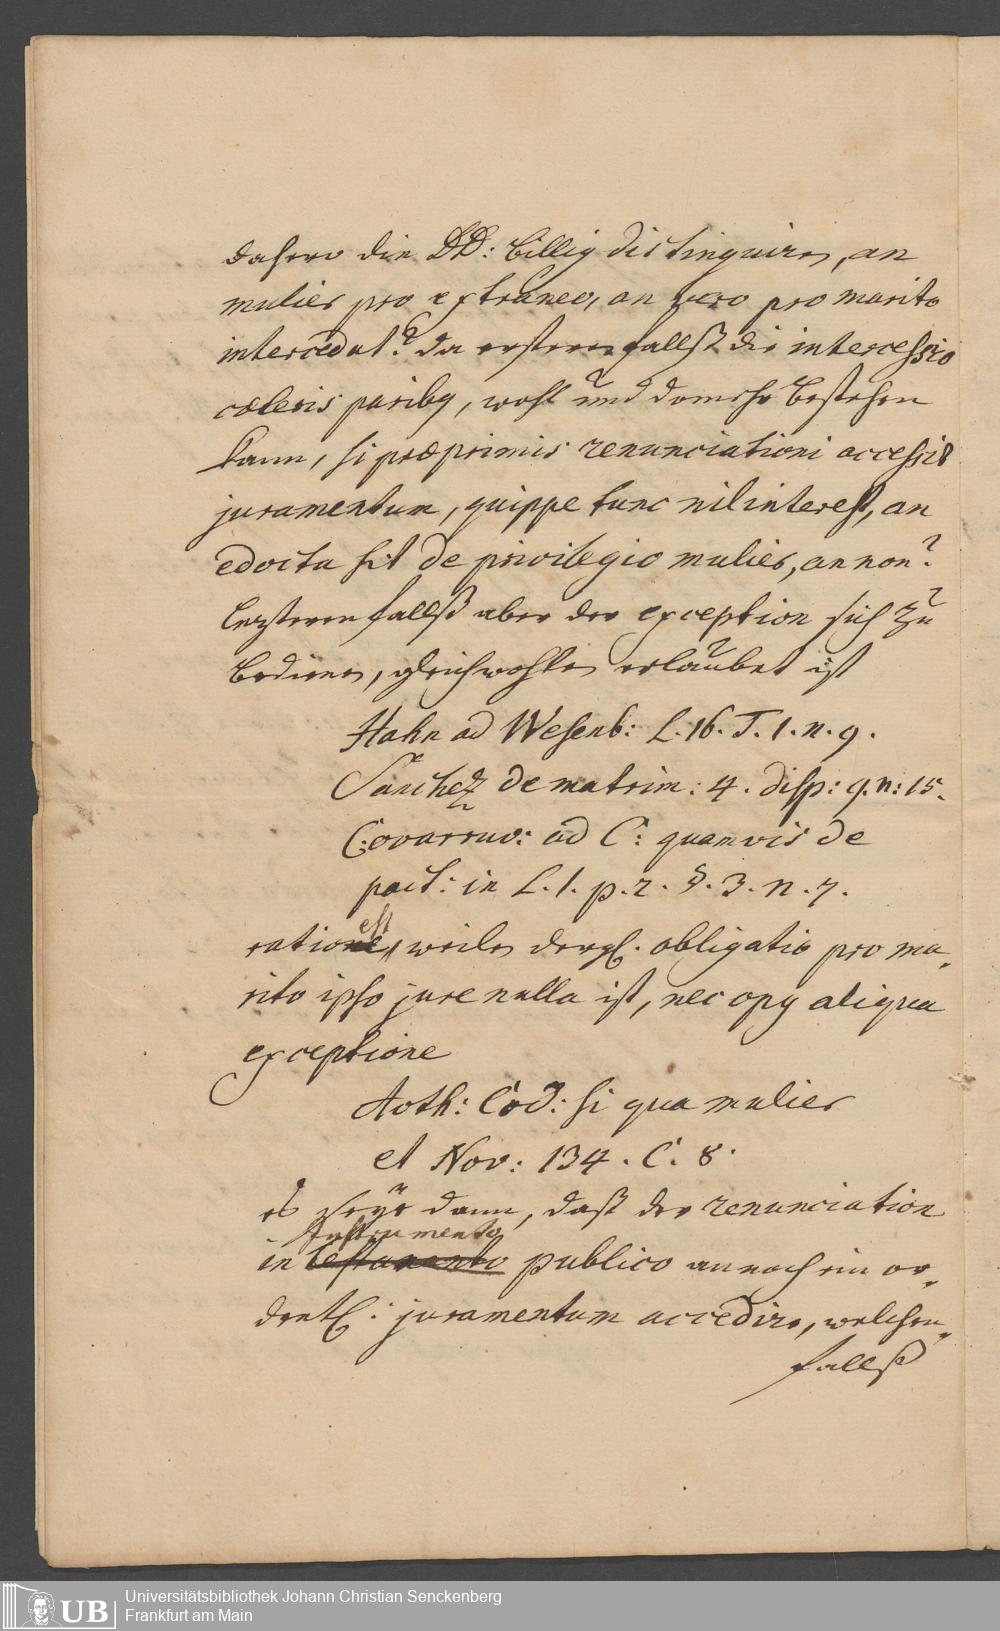 dahero die DD: billig distinguiren, an
mulier pro extraneo, an vero pro marito
intercedat? da ersteren fallß die intercessio
cæteris paribq, wohl und  bestehen
kann, si præprimis renunciationi accessit
juramentum, quippe tunc nil interest, an
edocta sit de privilegio mulier, an non?
lezteren fallß aber der exception sich zu
bedienen, gleichwohlen erlaubet ist
Hahn ad Wesenb: L. 16. T. 1. n. 9.
Sanchez de matrim: 4. disp: 9. n: 15.
Covarruv: ad C: quamvis de
pact: in L. 1. p. 2. §. 3. n. 7.
est
ratione, weilen dergl. obligatio pro ma„
rito ipso jure nulla ist, nec opq aliqua
exceptione
Auth: Cod: si qua mulier
et Nov: 134. C. 8.
es seye dann, daß der renunciation
Instrumento
in testamento publico annoch ein or„
dentl: juramentum accedire, welchen„
fallß
Universitätsbibliothek Johann Christian Senckenberg
UB Frankfurt am Main